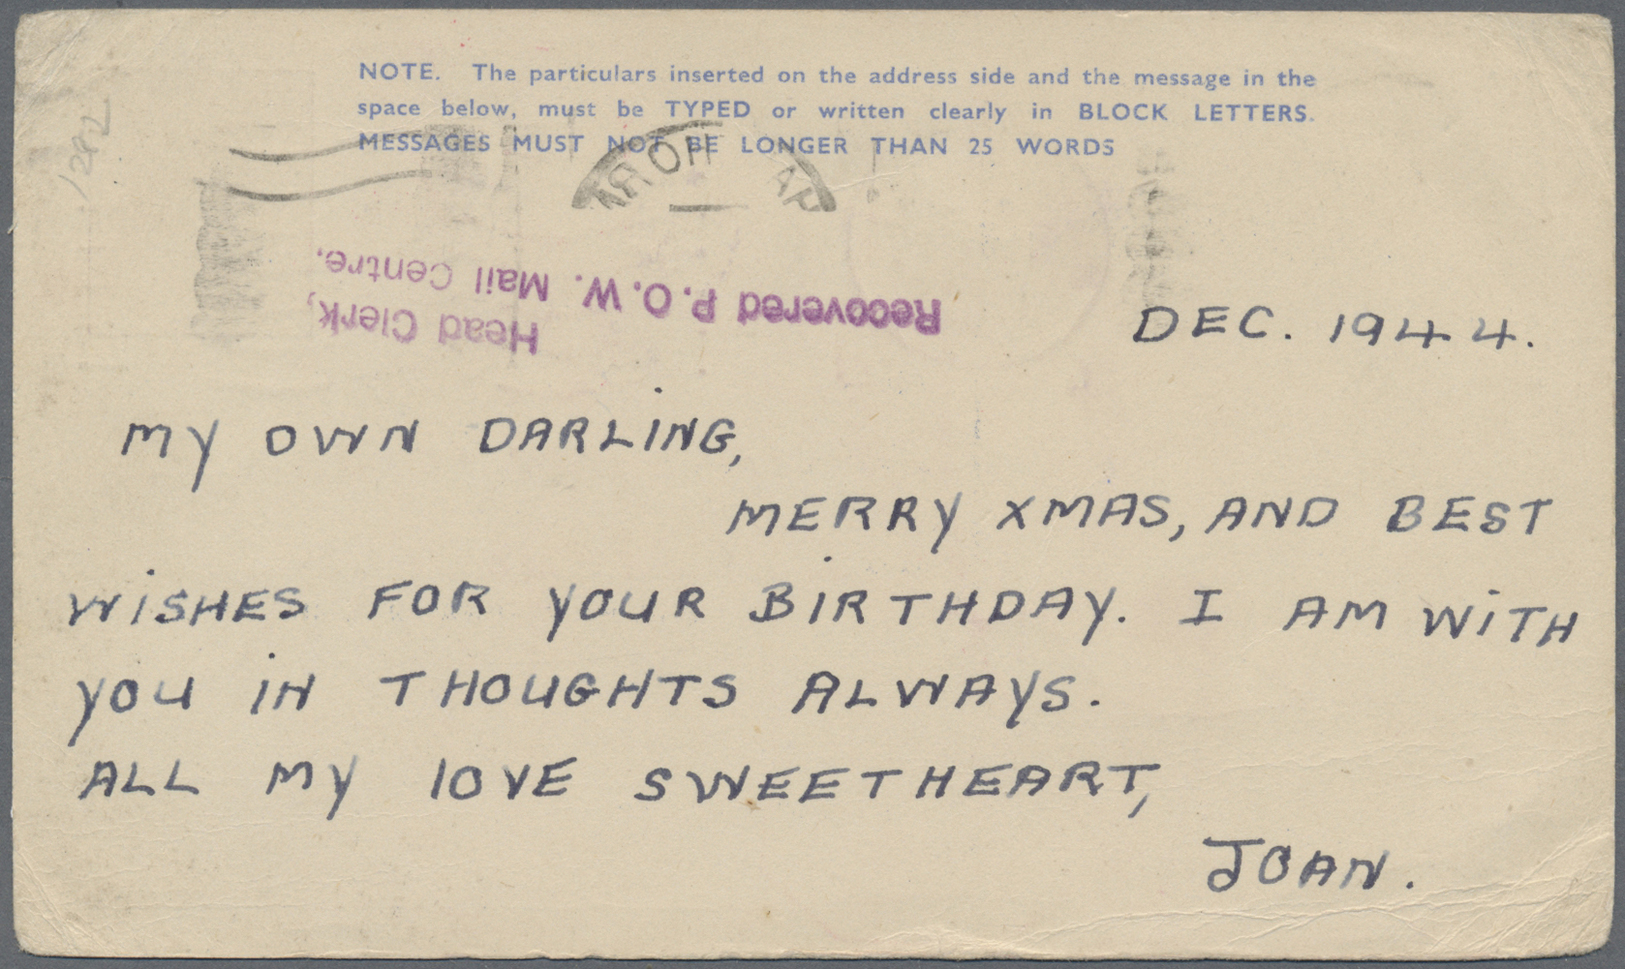 NOTE. The particulars inserted on the address side and the message in the
space below, must be TYPED or written clearly in BLOCK LETTERS.
MESSAGES MUST NOT BE LONGER THAN 25 WORDS
Recovered P.O.W. Mail Centre.
Head Clerk,
DEC. 1944.
MY OWN DARLING,
MERRY XMAS, AND BEST
WiSHES FOR YOUR BiRTHDAY. I AM WiTH
YOU iN THOUGHTS ALWAYS.
ALL MY lOVE SWEETHEART,
JOAN.